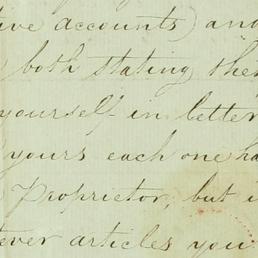 ive accounts) and
both stating the
yourself in letter
yours each one ha
Proprietor, but i
ever articles you